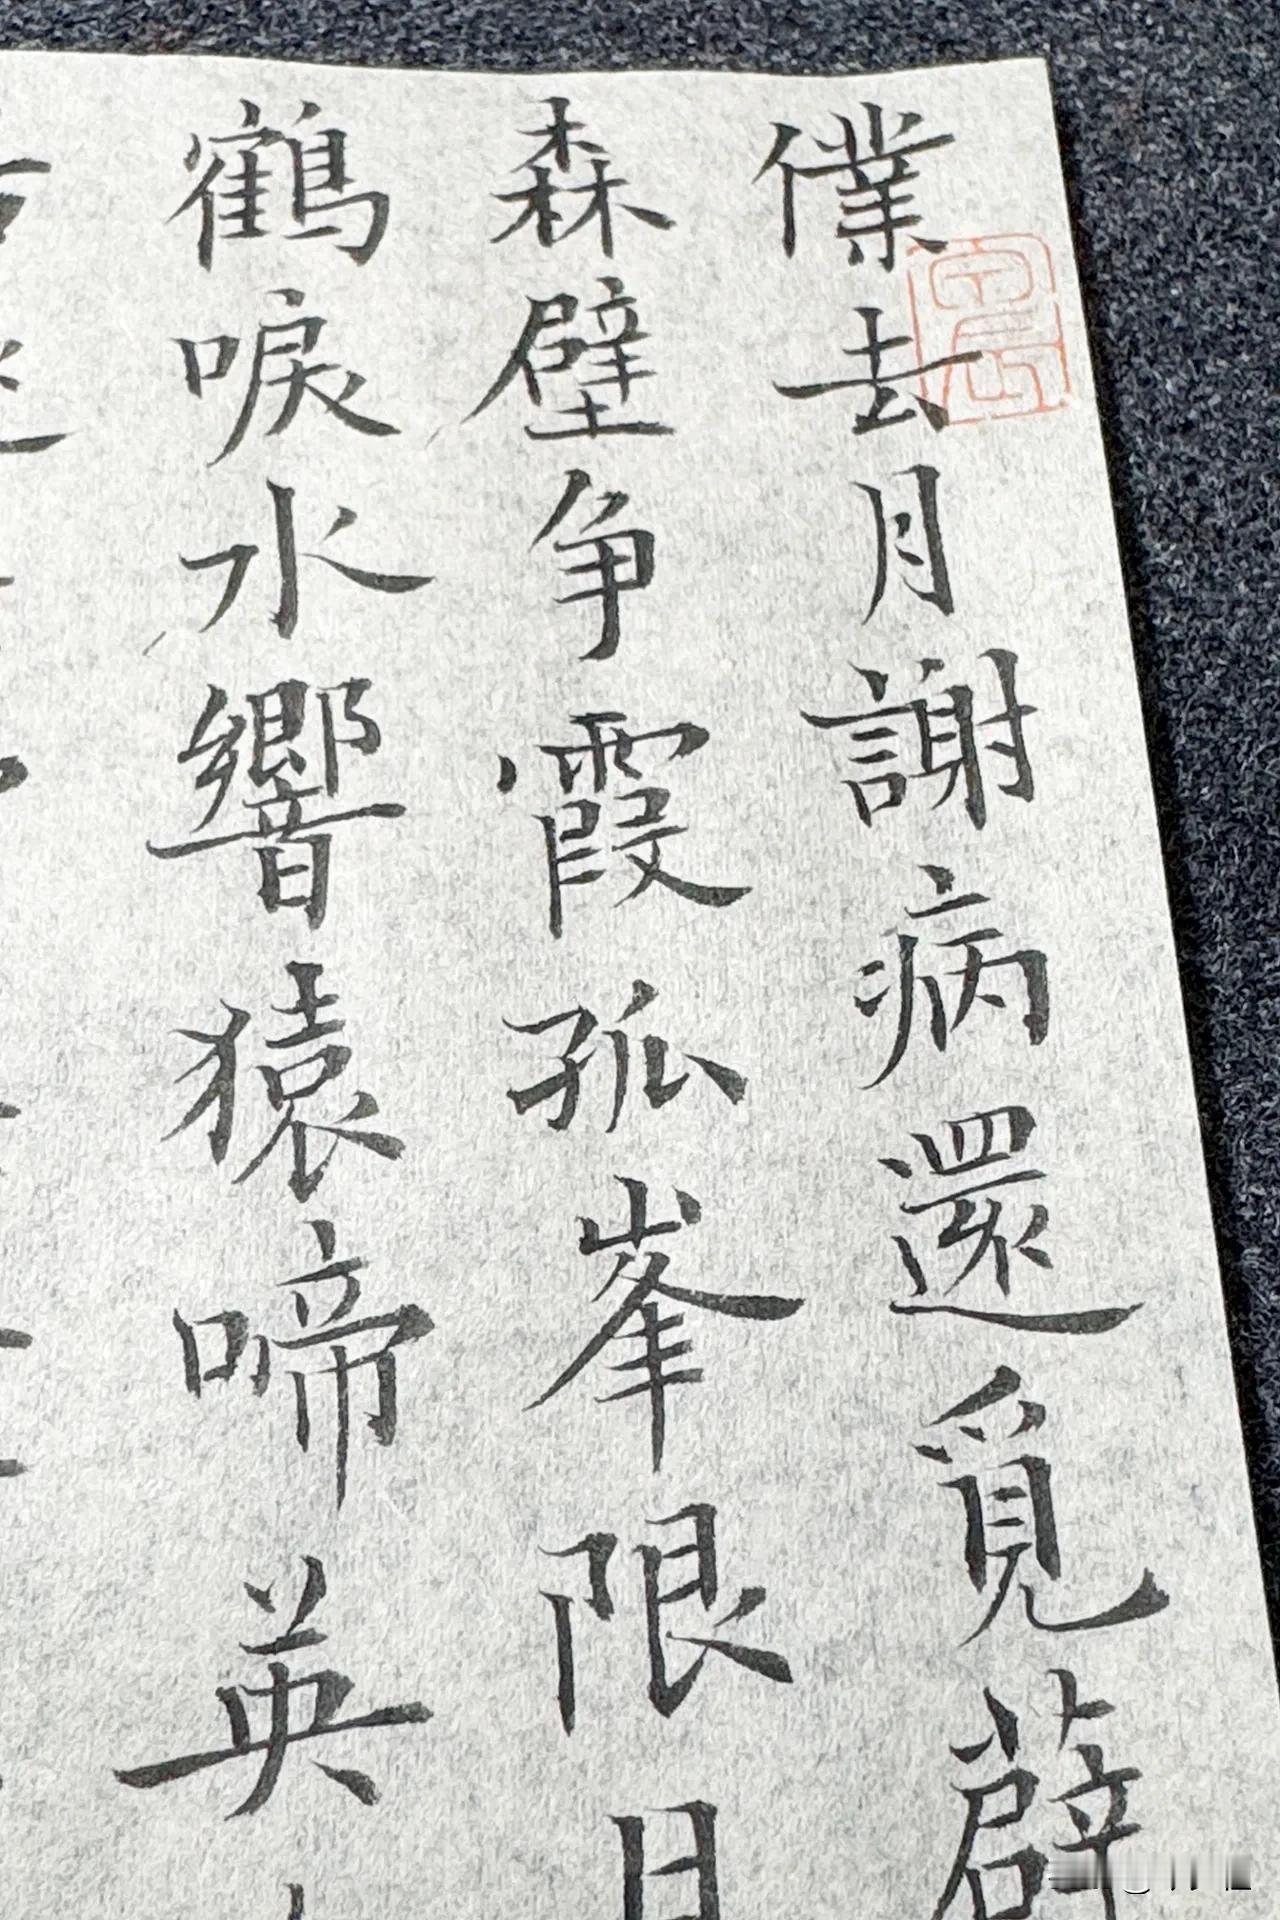 僕去月謝病還覓薜
森壁争霞孤峯限日
鶴唳水響猿啼英